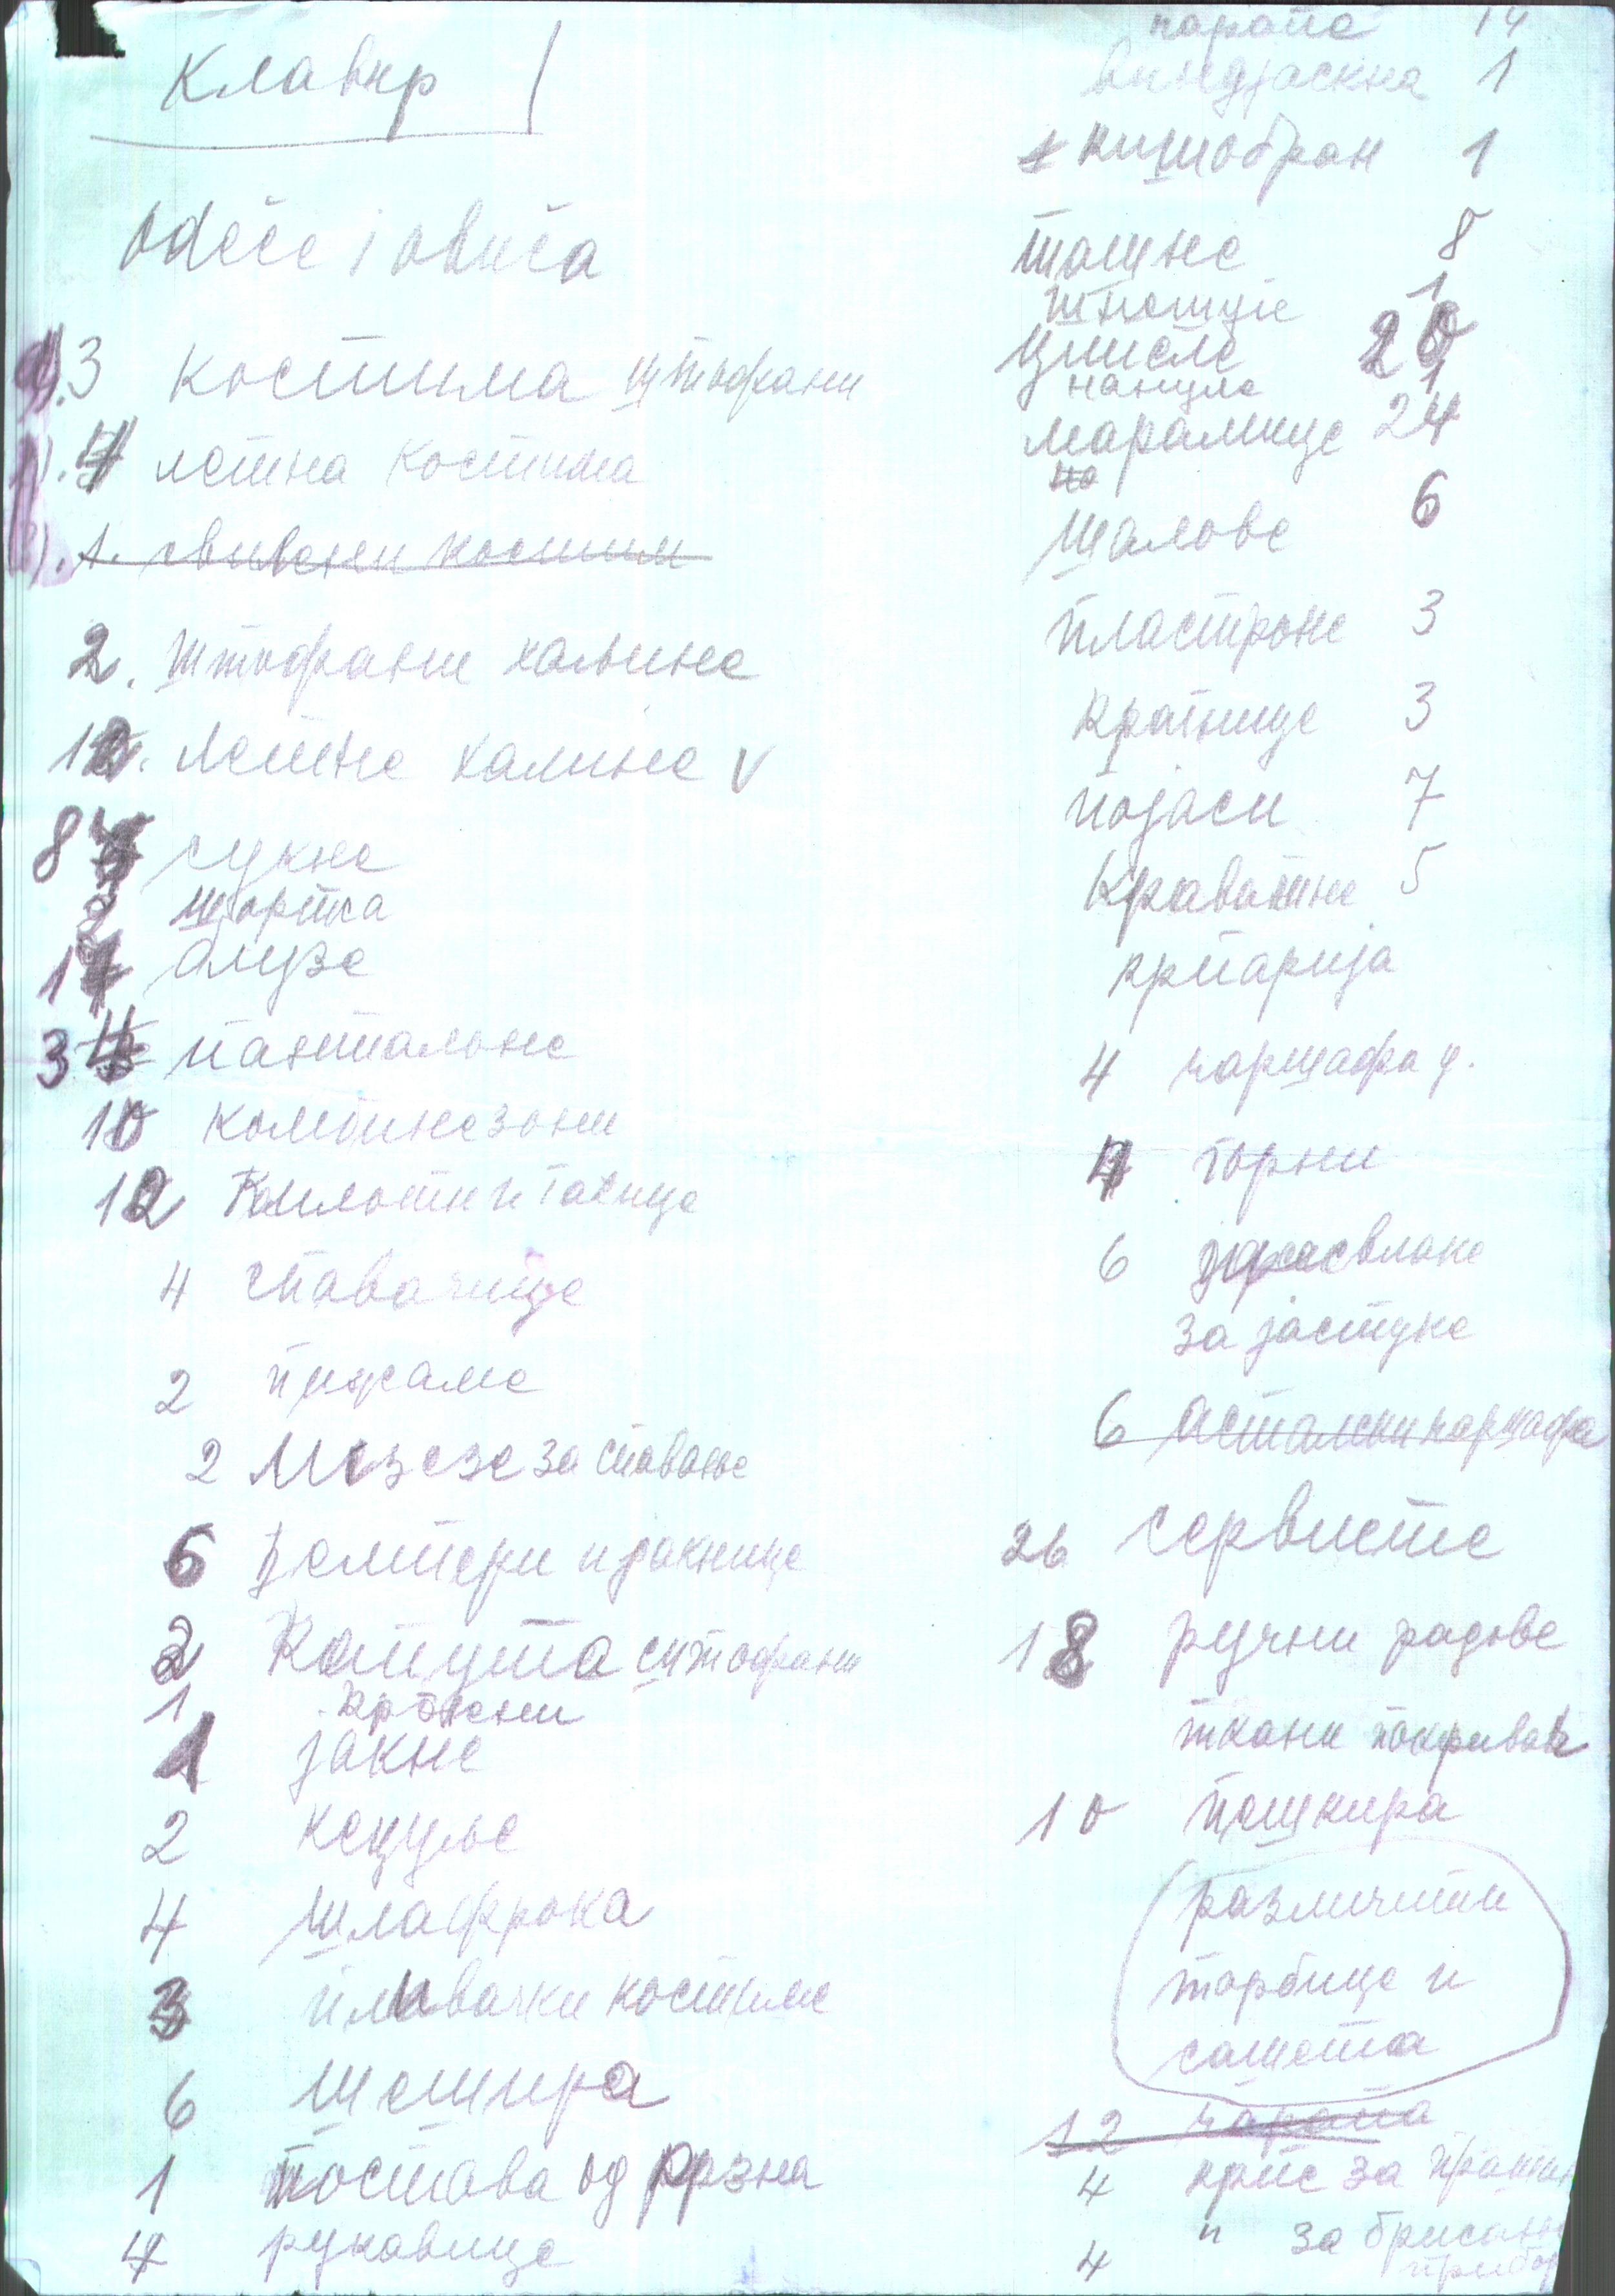 Клавир 1
одеће и обића
3 костима штофани
4 летна костима
1. свилени костим
2. штофане хаљине
12. летне хаљине v
8 сукње
2 шортса
блузе
3 панталоне
10 комбинезони
12 Килоти и гаћице
4 спаваћице
2 пижаме
2 за спавање
6 Џемпери и јакнице
2 Капута штофани
1 крзнени
1 јакне
2 кецуље
4 шлафрока
3 пливачки костиме
6 шешира
1 постава од крзна
4 рукавице
чарапе 14
виндјакна 1
кишобран 1
ташне 8
1
ципеле 20
нануле 1
марамице 24
шалове 6
пластроне 3
крагнице 3
појаси 7
Краватне 5
крпарија
4 чаршафа д.
4 горњи
6 навлаке
за јастуке
6 асталски чаршафа
26 сервиете
18 ручни радове
ткани покривач
10 пешкира
различити
торбице и
сашета
12 чарапа
4 крпе за
4 " за брисање
прибор